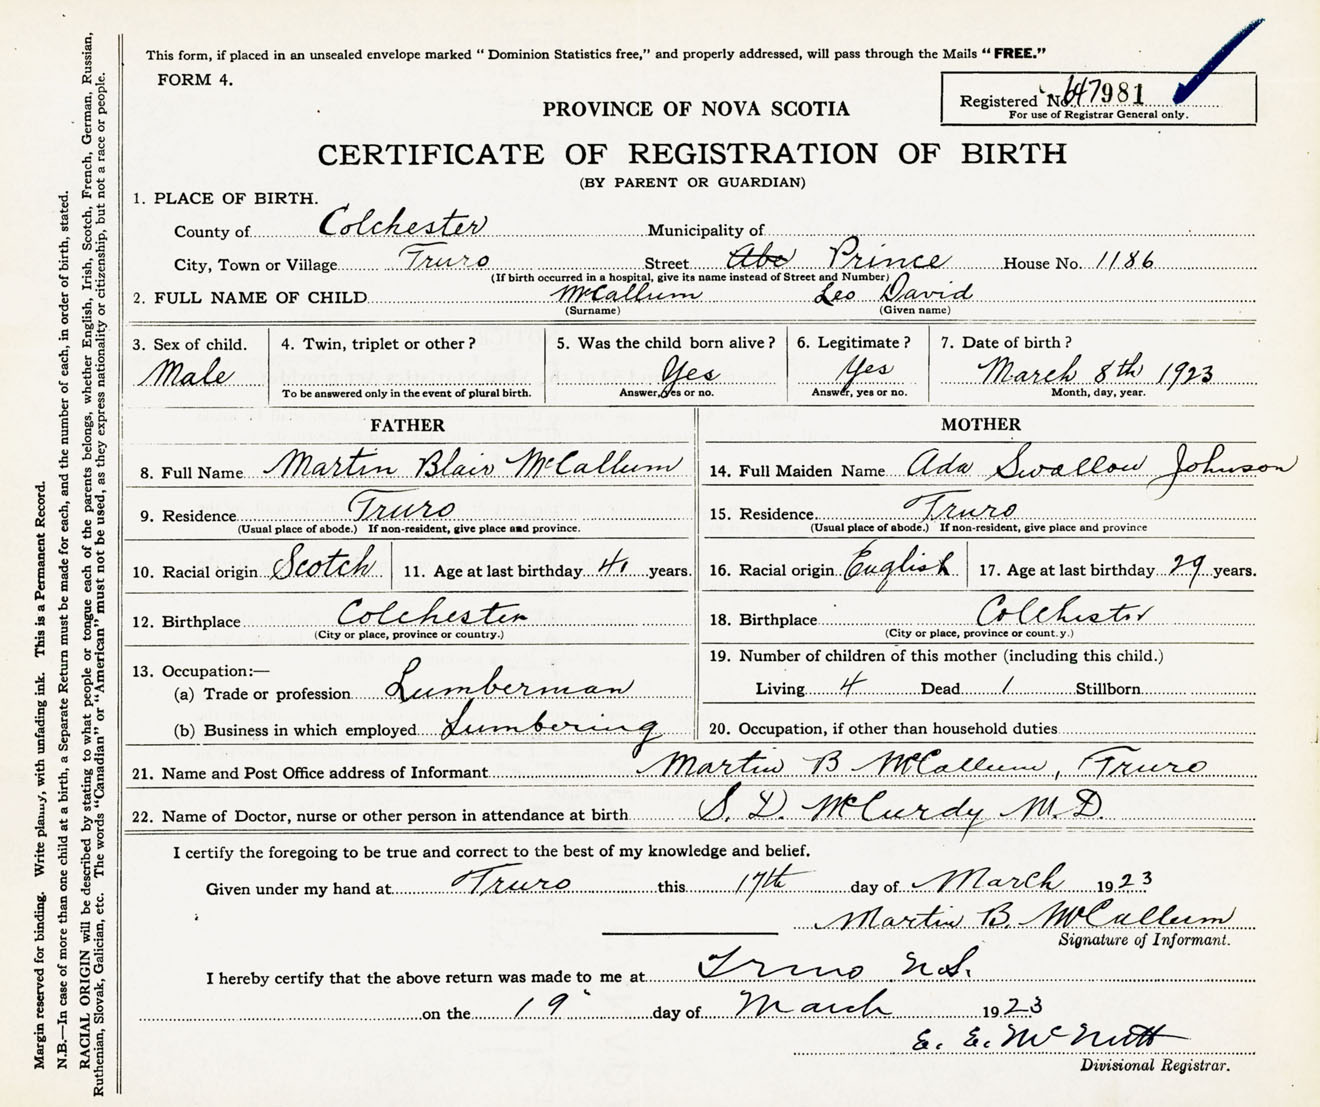 This form, if placed in an unsealed envelope marked “ Dominion Statistics free,” and properly addressed, will pass through the Mails “ FREE.”
FORM 4.
Registered No. 647981
For use of Registrar General only.
PROVINCE OF NOVA SCOTIA
CERTIFICATE OF REGISTRATION OF BIRTH
(BY PARENT OR GUARDIAN)
1. PLACE OF BIRTH.
County of Colchester Municipality of
City, Town or Village Truro Street Prince House No. 1186
(If birth occurred in a hospital, give its name instead of Street and Number)
2. FULL NAME OF CHILD McCallum Leo David
(Surname) (Given name)
3. Sex of child. 4. Twin, triplet or other ? 5. Was the child born alive ? 6. Legitimate ? 7. Date of birth ?
Male Yes Yes March 8th 1923
To be answered only in the event of plural birth. Answer, yes or no. Answer, yes or no. Month, day, year.
FATHER MOTHER
8. Full Name Martin Blair McCallum 14. Full Maiden Name Ada Swallow Johnson
9. Residence Truro 15. Residence Truro
(Usual place of abode.) If non-resident, give place and province. (Usual place of abode.) If non-resident, give place and province
10. Racial origin Scotch 11. Age at last birthday 41 years. 16. Racial origin English 17. Age at last birthday 29 years.
12. Birthplace Colchester 18. Birthplace Colchester
(City or place, province or country.) (City or place, province or country.)
13. Occupation:— 19. Number of children of this mother (including this child.)
(a) Trade or profession Lumberman Living 4 Dead 1 Stillborn
(b) Business in which employed Lumbering 20. Occupation, if other than household duties
21. Name and Post Office address of Informant Martin B McCallum, Truro
22. Name of Doctor, nurse or other person in attendance at birth S. D. McCurdy M.D.
I certify the foregoing to be true and correct to the best of my knowledge and belief.
Given under my hand at Truro this 17th day of March 1923
Martin B. McCallum
Signature of Informant.
I hereby certify that the above return was made to me at Truro N.S.
on the 19" day of March 1923
E. E. McNutt
Divisional Registrar.
Margin reserved for binding. Write plainly, with unfading ink. This is a Permanent Record.
N.B.—In case of more than one child at a birth, a Separate Return must be made for each, and the number of each, in order of birth, stated.
RACIAL ORIGIN will be described by stating to what people or tongue each of the parents belongs, whether English, Irish, Scotch, French, German, Russian,
Ruthenian, Slovak, Galician, etc. The words “Canadian” or “American” must not be used, as they express nationality or citizenship, but not a race or people.